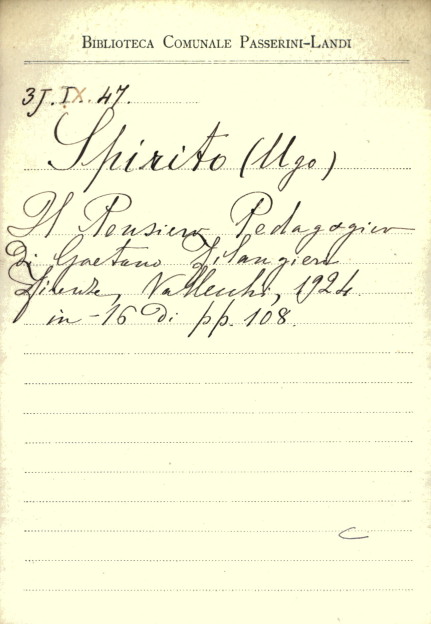 BIBLIOTECA COMUNALE PASSERINI-LANDI
3J.IX.47.
Spirito (Ugo)
Il Pensiero Pedagogico
Di Gaetano Filangieri
Firenze, Vallecchi, 1924
in-16 Di pp. 108.
C